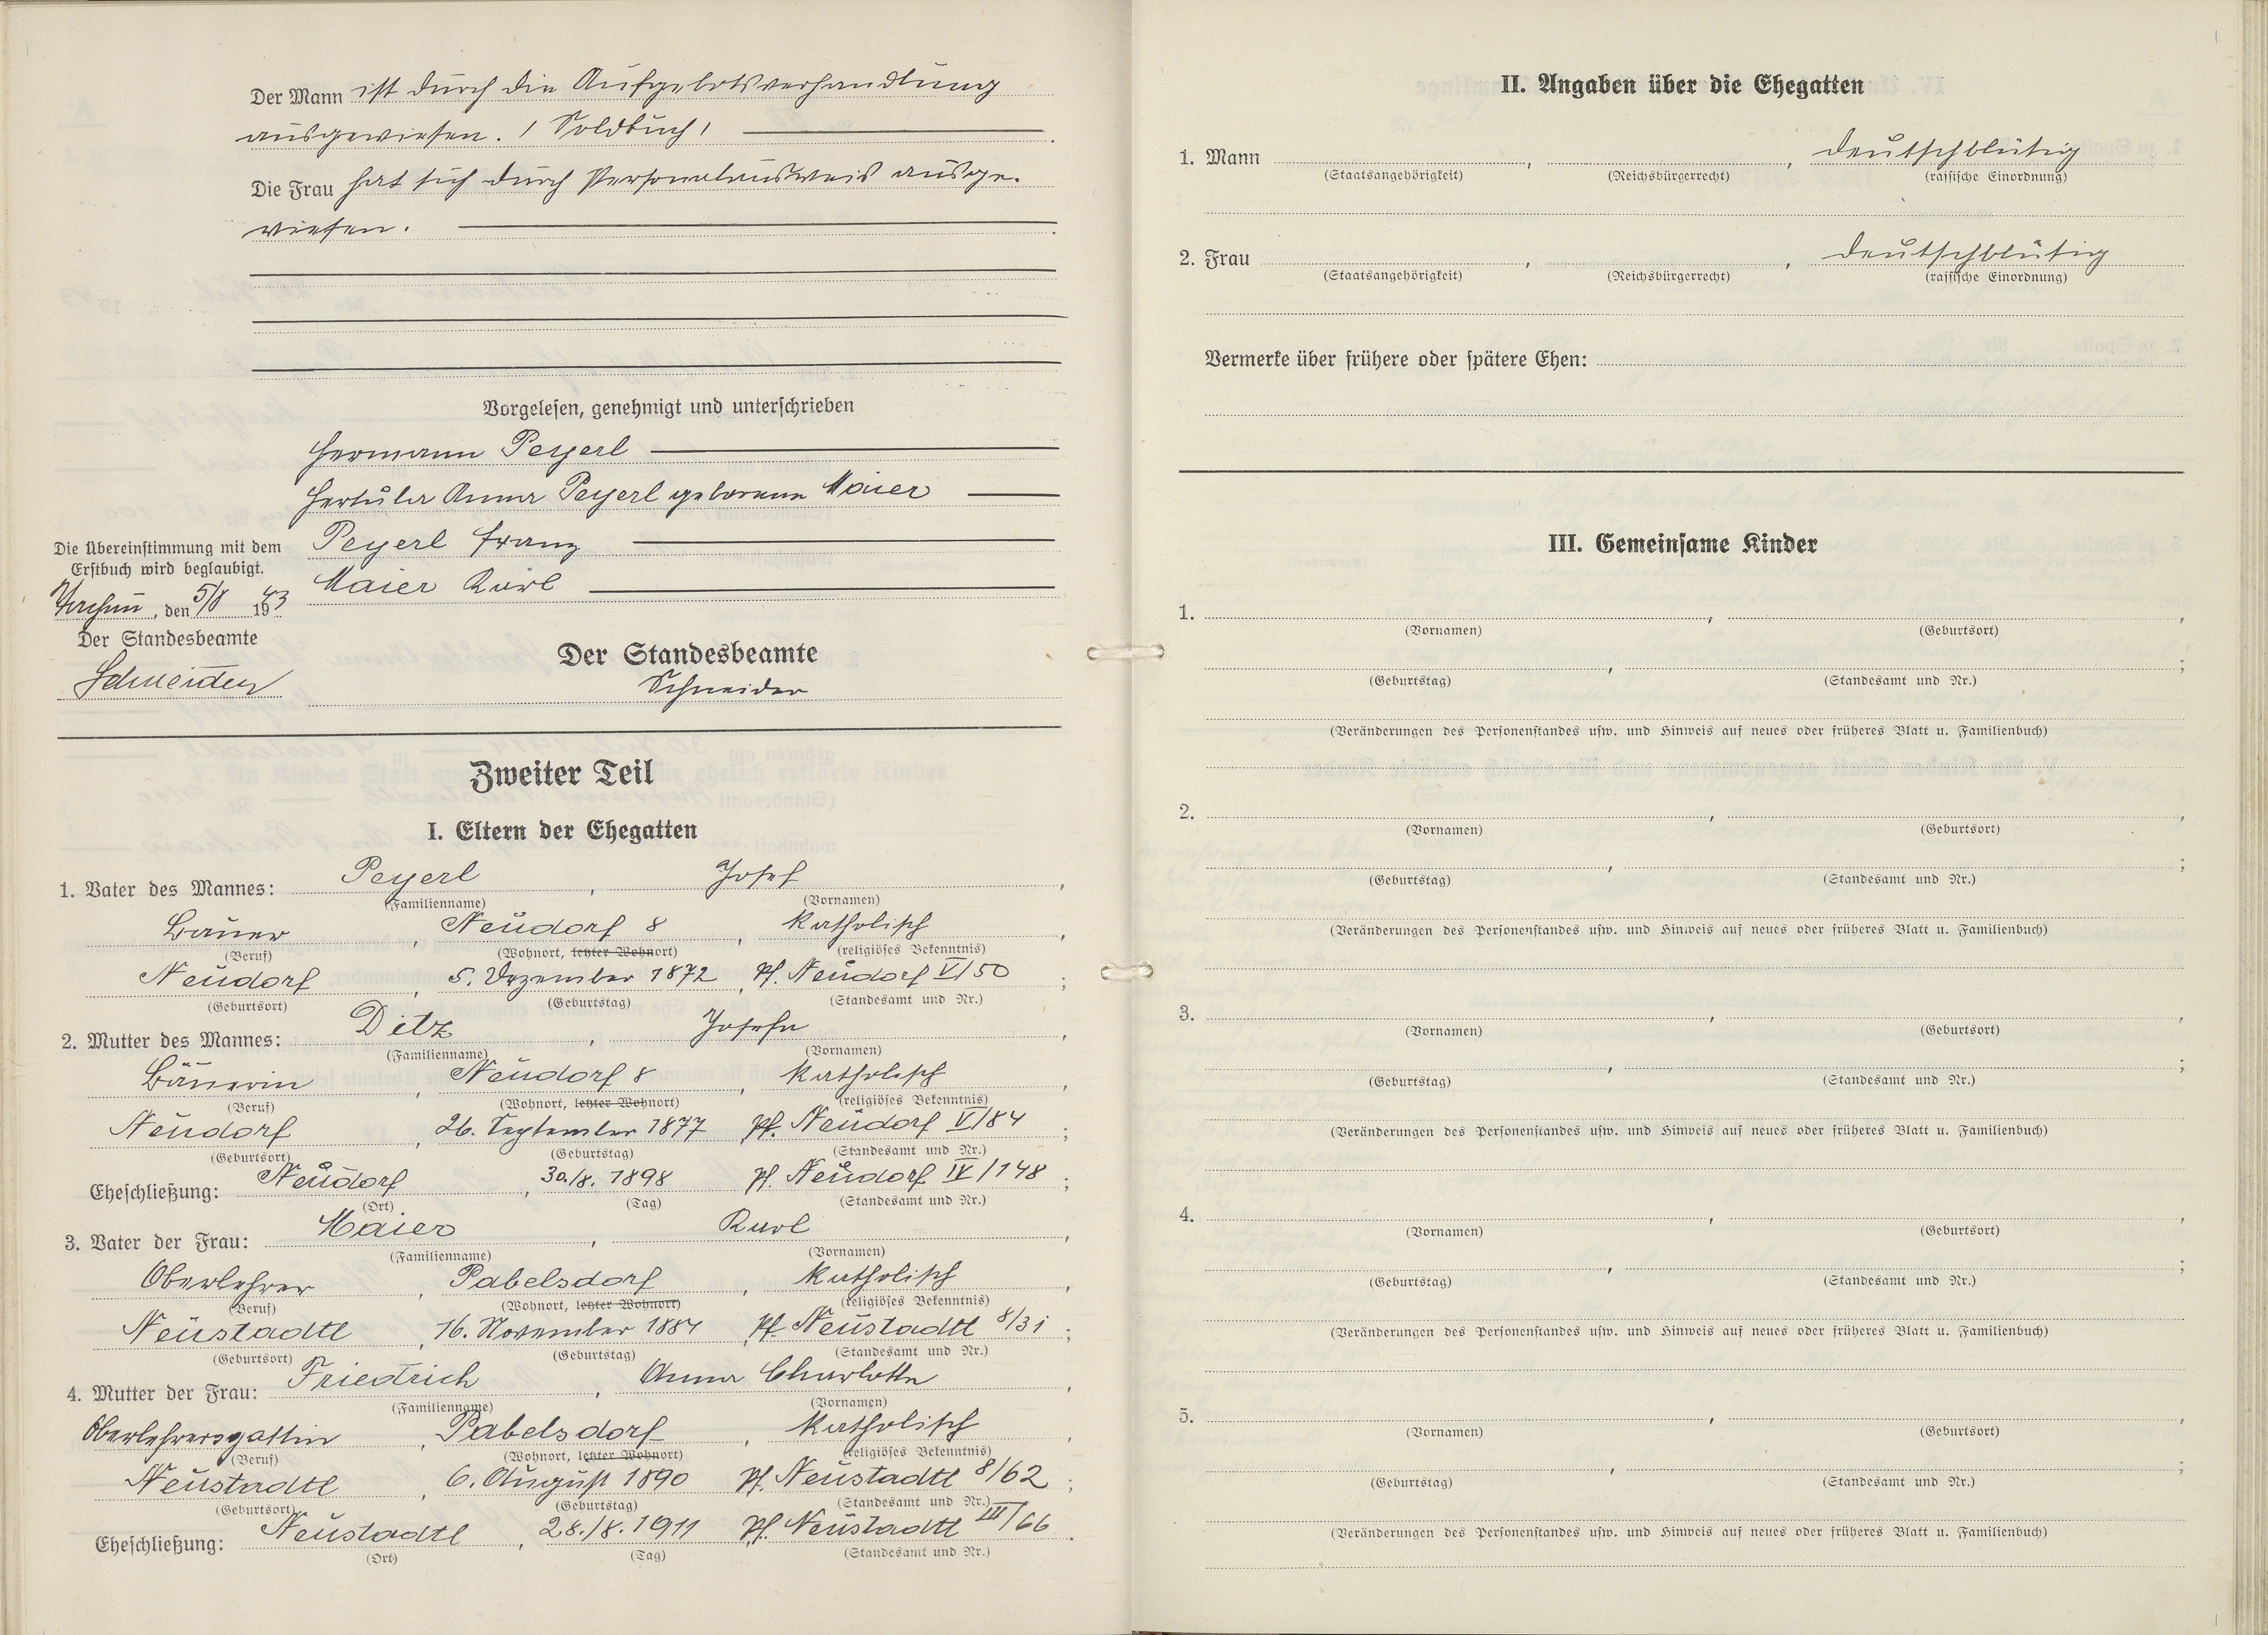 Der Mann ist durch die Aufgebotsverhandlung
ausgewiesen. / Soldbuch /
Die Frau hat sich durch Personalausweis ausge-
wiesen.
Vorgelesen, genehmigt und unterschrieben
Hermann Peyerl
Hertula Anna Peyerl geborene Maier
Peyerl Franz
Maier Karl
Die Übereinstimmung mit dem
Erstbuch wird beglaubigt.
, den 5/8 1943
Der Standesbeamte
Schneider
Der Standesbeamte
Schneider
Zweiter Teil
I. Eltern der Ehegatten
1. Vater des Mannes: Peyerl, Josef,
(Familienname) (Vornamen)
Bauer, Neudorf 8, katholisch,
(Beruf) (Wohnort, letzter Wohnort) (religiöses Bekenntnis)
Neudorf, 5. Dezember 1872, Pf. Neudorf V/50;
(Geburtsort) (Geburtstag) (Standesamt und Nr.)
2. Mutter des Mannes: Ditz, Josefa,
(Familienname) (Vornamen)
Bäuerin, Neudorf 8, katholisch,
(Beruf) (Wohnort, letzter Wohnort) (religiöses Bekenntnis)
Neudorf, 26. September 1877 Pf. Neudorf V/84;
(Geburtsort) (Geburtstag) (Standesamt und Nr.)
Eheschließung: Neudorf, 30./8. 1898 Pf. Neudorf IV/148;
(Ort) (Tag) (Standesamt und Nr.)
3. Vater der Frau: Maier, Karl,
(Familienname) (Vornamen)
Oberlehrer, Pabelsdorf, katholisch,
(Beruf) (Wohnort, letzter Wohnort) (religiöses Bekenntnis)
Neustadtl, 16. November 1884, Pf. Neustadtl 8/31;
(Geburtsort) (Geburtstag) (Standesamt und Nr.)
4. Mutter der Frau: Friedrich, Anna Charlotte,
(Familienname) (Vornamen)
Oberlehrersgattin, Pabelsdorf, katholisch,
(Beruf) (Wohnort, letzter Wohnort) (religiöses Bekenntnis)
Neustadtl, 6. August 1890 Pf. Neustadtl 8/62;
(Geburtsort) (Geburtstag) (Standesamt und Nr.)
Eheschließung: Neustadtl, 28./8. 1911, Pf. Neustadtl III/66.
(Ort) (Tag) (Standesamt und Nr.)
II. Angaben über die Ehegatten
1. Mann , , deutschblütig
(Staatsangehörigkeit) (Reichsbürgerrecht) (rassische Einordnung)
2. Frau , , deutschblütig
(Staatsangehörigkeit) (Reichsbürgerrecht) (rassische Einordnung)
Vermerke über frühere oder spätere Ehen:
III. Gemeinsame Kinder
1. , ,
(Vornamen) (Geburtsort)
, ;
(Geburtstag) (Standesamt und Nr.)
(Veränderungen des Personenstandes usw. und Hinweis auf neues oder früheres Blatt u. Familienbuch)
2. , ,
(Vornamen) (Geburtsort)
, ;
(Geburtstag) (Standesamt und Nr.)
(Veränderungen des Personenstandes usw. und Hinweis auf neues oder früheres Blatt u. Familienbuch)
3. , ,
(Vornamen) (Geburtsort)
, ;
(Geburtstag) (Standesamt und Nr.)
(Veränderungen des Personenstandes usw. und Hinweis auf neues oder früheres Blatt u. Familienbuch)
4. , ,
(Vornamen) (Geburtsort)
, ;
(Geburtstag) (Standesamt und Nr.)
(Veränderungen des Personenstandes usw. und Hinweis auf neues oder früheres Blatt u. Familienbuch)
5. , ,
(Vornamen) (Geburtsort)
, ;
(Geburtstag) (Standesamt und Nr.)
(Veränderungen des Personenstandes usw. und Hinweis auf neues oder früheres Blatt u. Familienbuch)